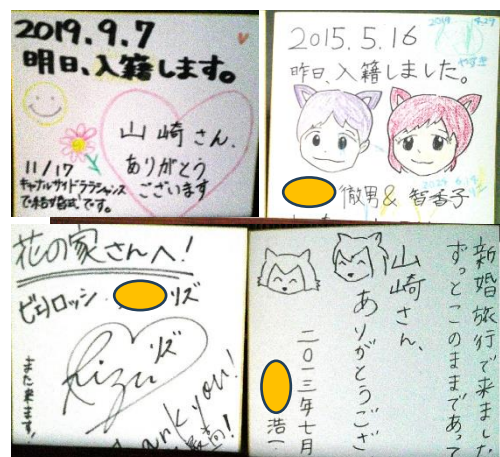 2019.9.7
明日、入籍します。
山崎さん、
ありがとう
ございます
11/17
キャナルサイドララシャンス
で結婚式です。
2015.5.16
昨日、入籍しました。
徹男 & 智香子
花の家さんへ!
ピエロッシ リズ
Rizu
リズ
また来ます!
Thank you!
最高!
新婚旅行で来ました
ずっとこのままであって
山崎さん、
ありがとうござ
二〇一三年七月
浩一